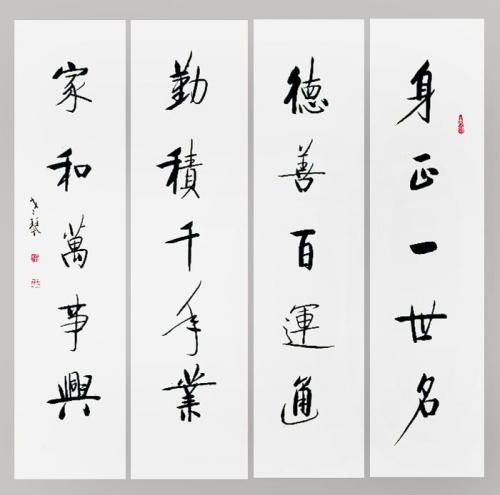 身正一世名
德善百運通
勤積千年業
家和萬事興